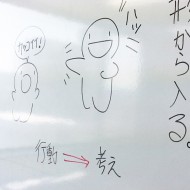 から入る。
ハッ
ハッ
行動 → 考え